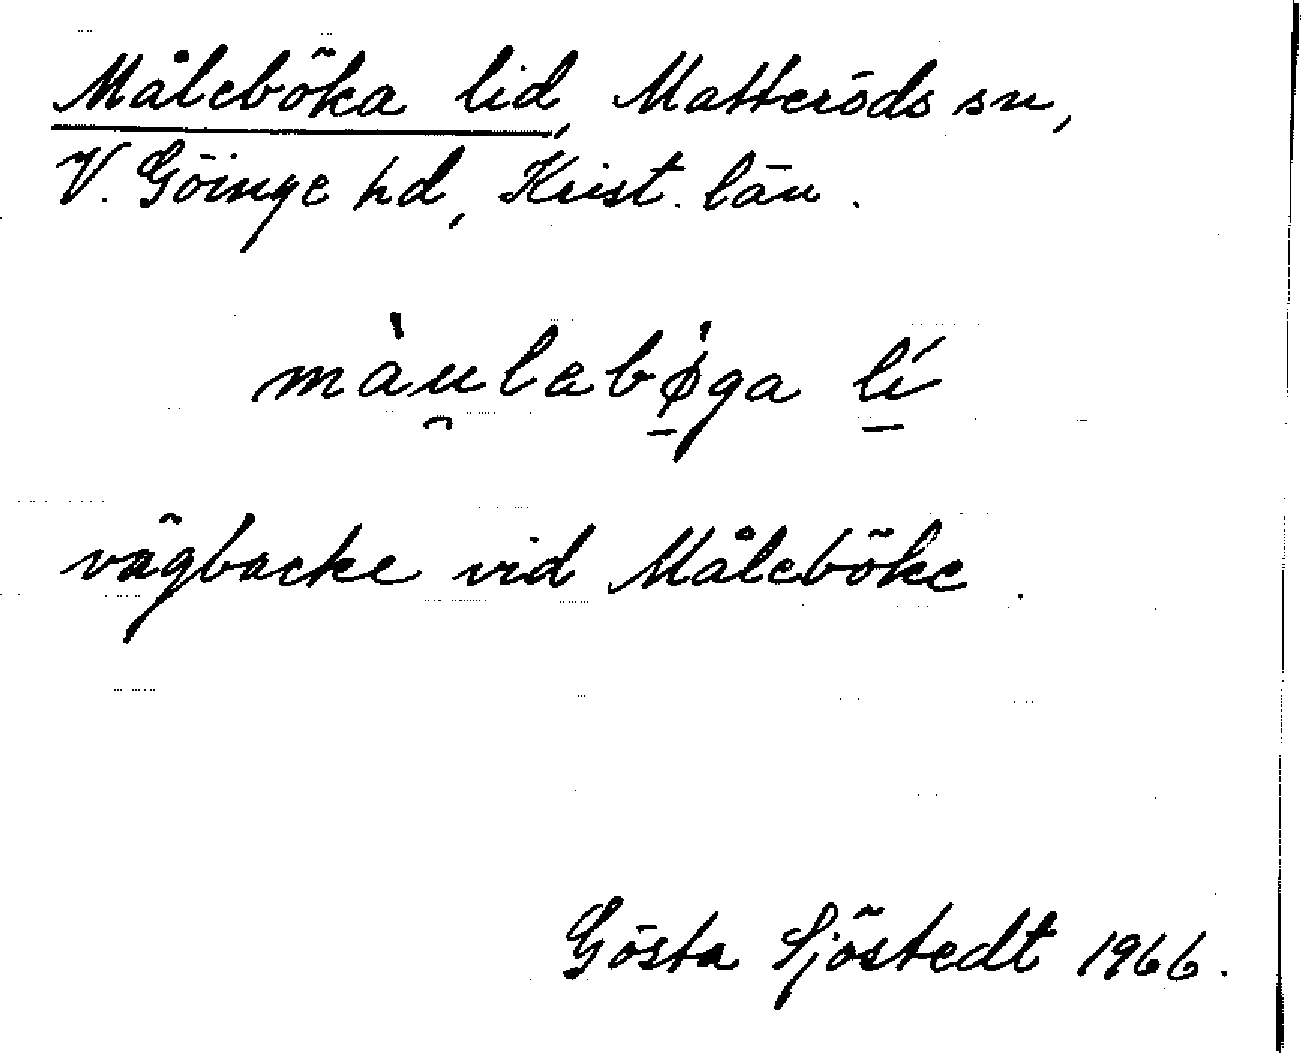 Måleböka lid, Matteröds sn,
V. Göinge hd, Krist. län.
màu̯lebø̱̀ga lí̱
vägbacke vid Måleböke.
Gösta Sjöstedt 1966.